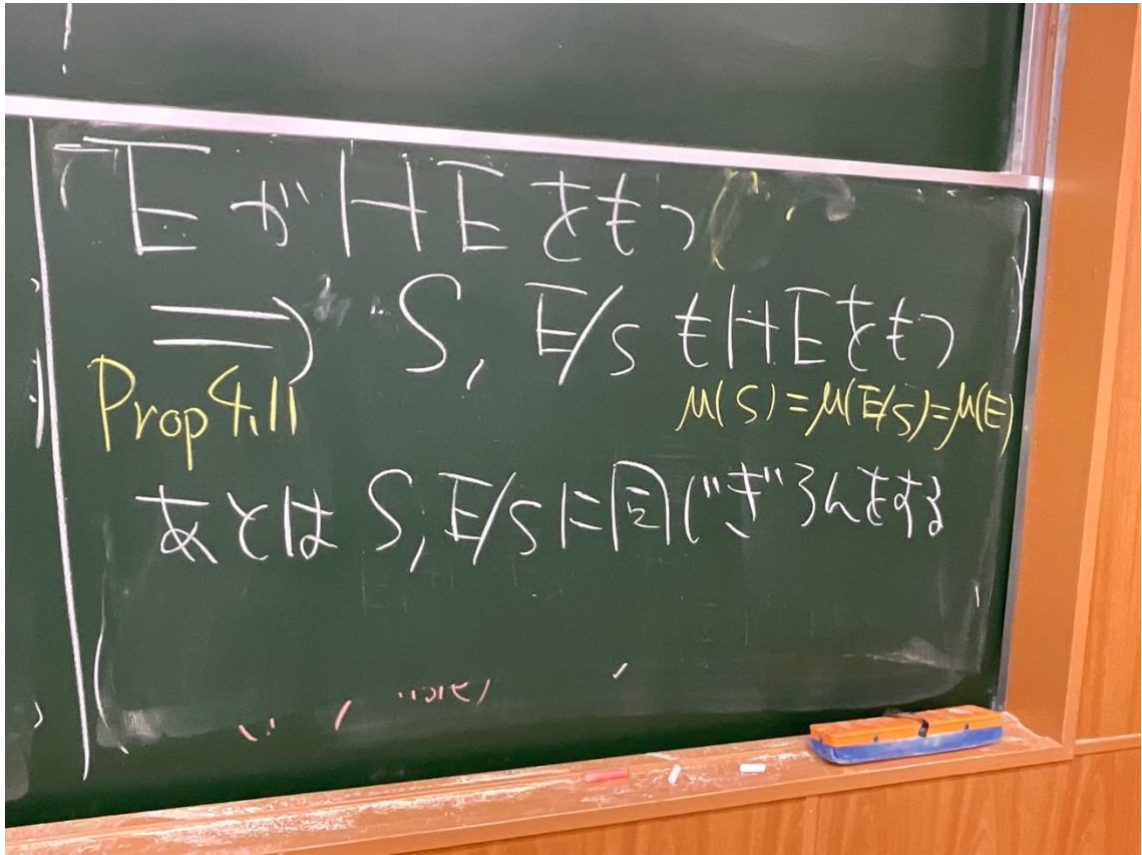 EがHEをもつ
⇒ S, E/S もHEをもつ
Prop 4.11 μ(S)=μ(E/S)=μ(E)
あとは S, E/Sに同じぎろんをする